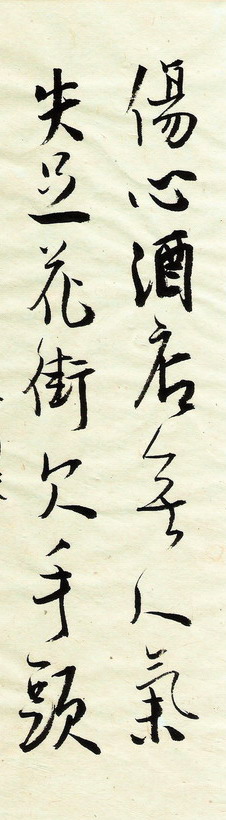 傷心酒店無人氣
失足花街欠手頭